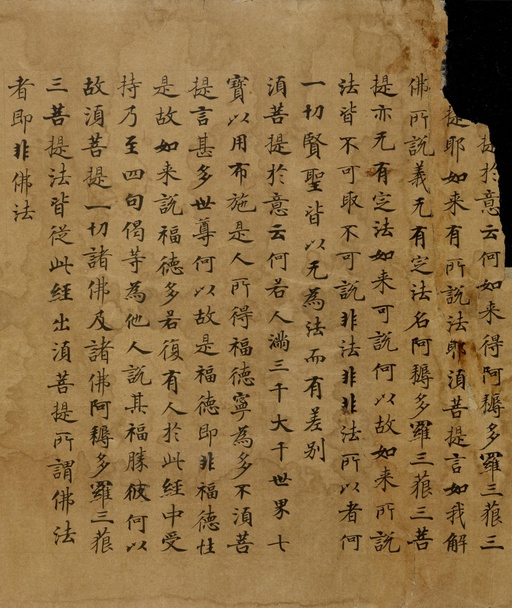 提於意云何如来得阿耨多羅三藐三
提耶如来有所說法耶湏菩提言如我解
佛所說義无有定法名阿耨多羅三藐三菩
提亦无有定法如来可說何以故如来所說
法皆不可取不可說非法非非法所以者何
一切賢聖皆以无為法而有差别
湏菩提於意云何若人滿三千大千世界七
寶以用布施是人所得福德寧為多不湏菩
提言甚多世尊何以故是福德即非福德性
是故如来說福德多若復有人於此經中受
持乃至四句偈等為他人說其福勝彼何以
故湏菩提一切諸佛及諸佛阿耨多羅三藐
三菩提法皆從此經出湏菩提所謂佛法
者即非佛法